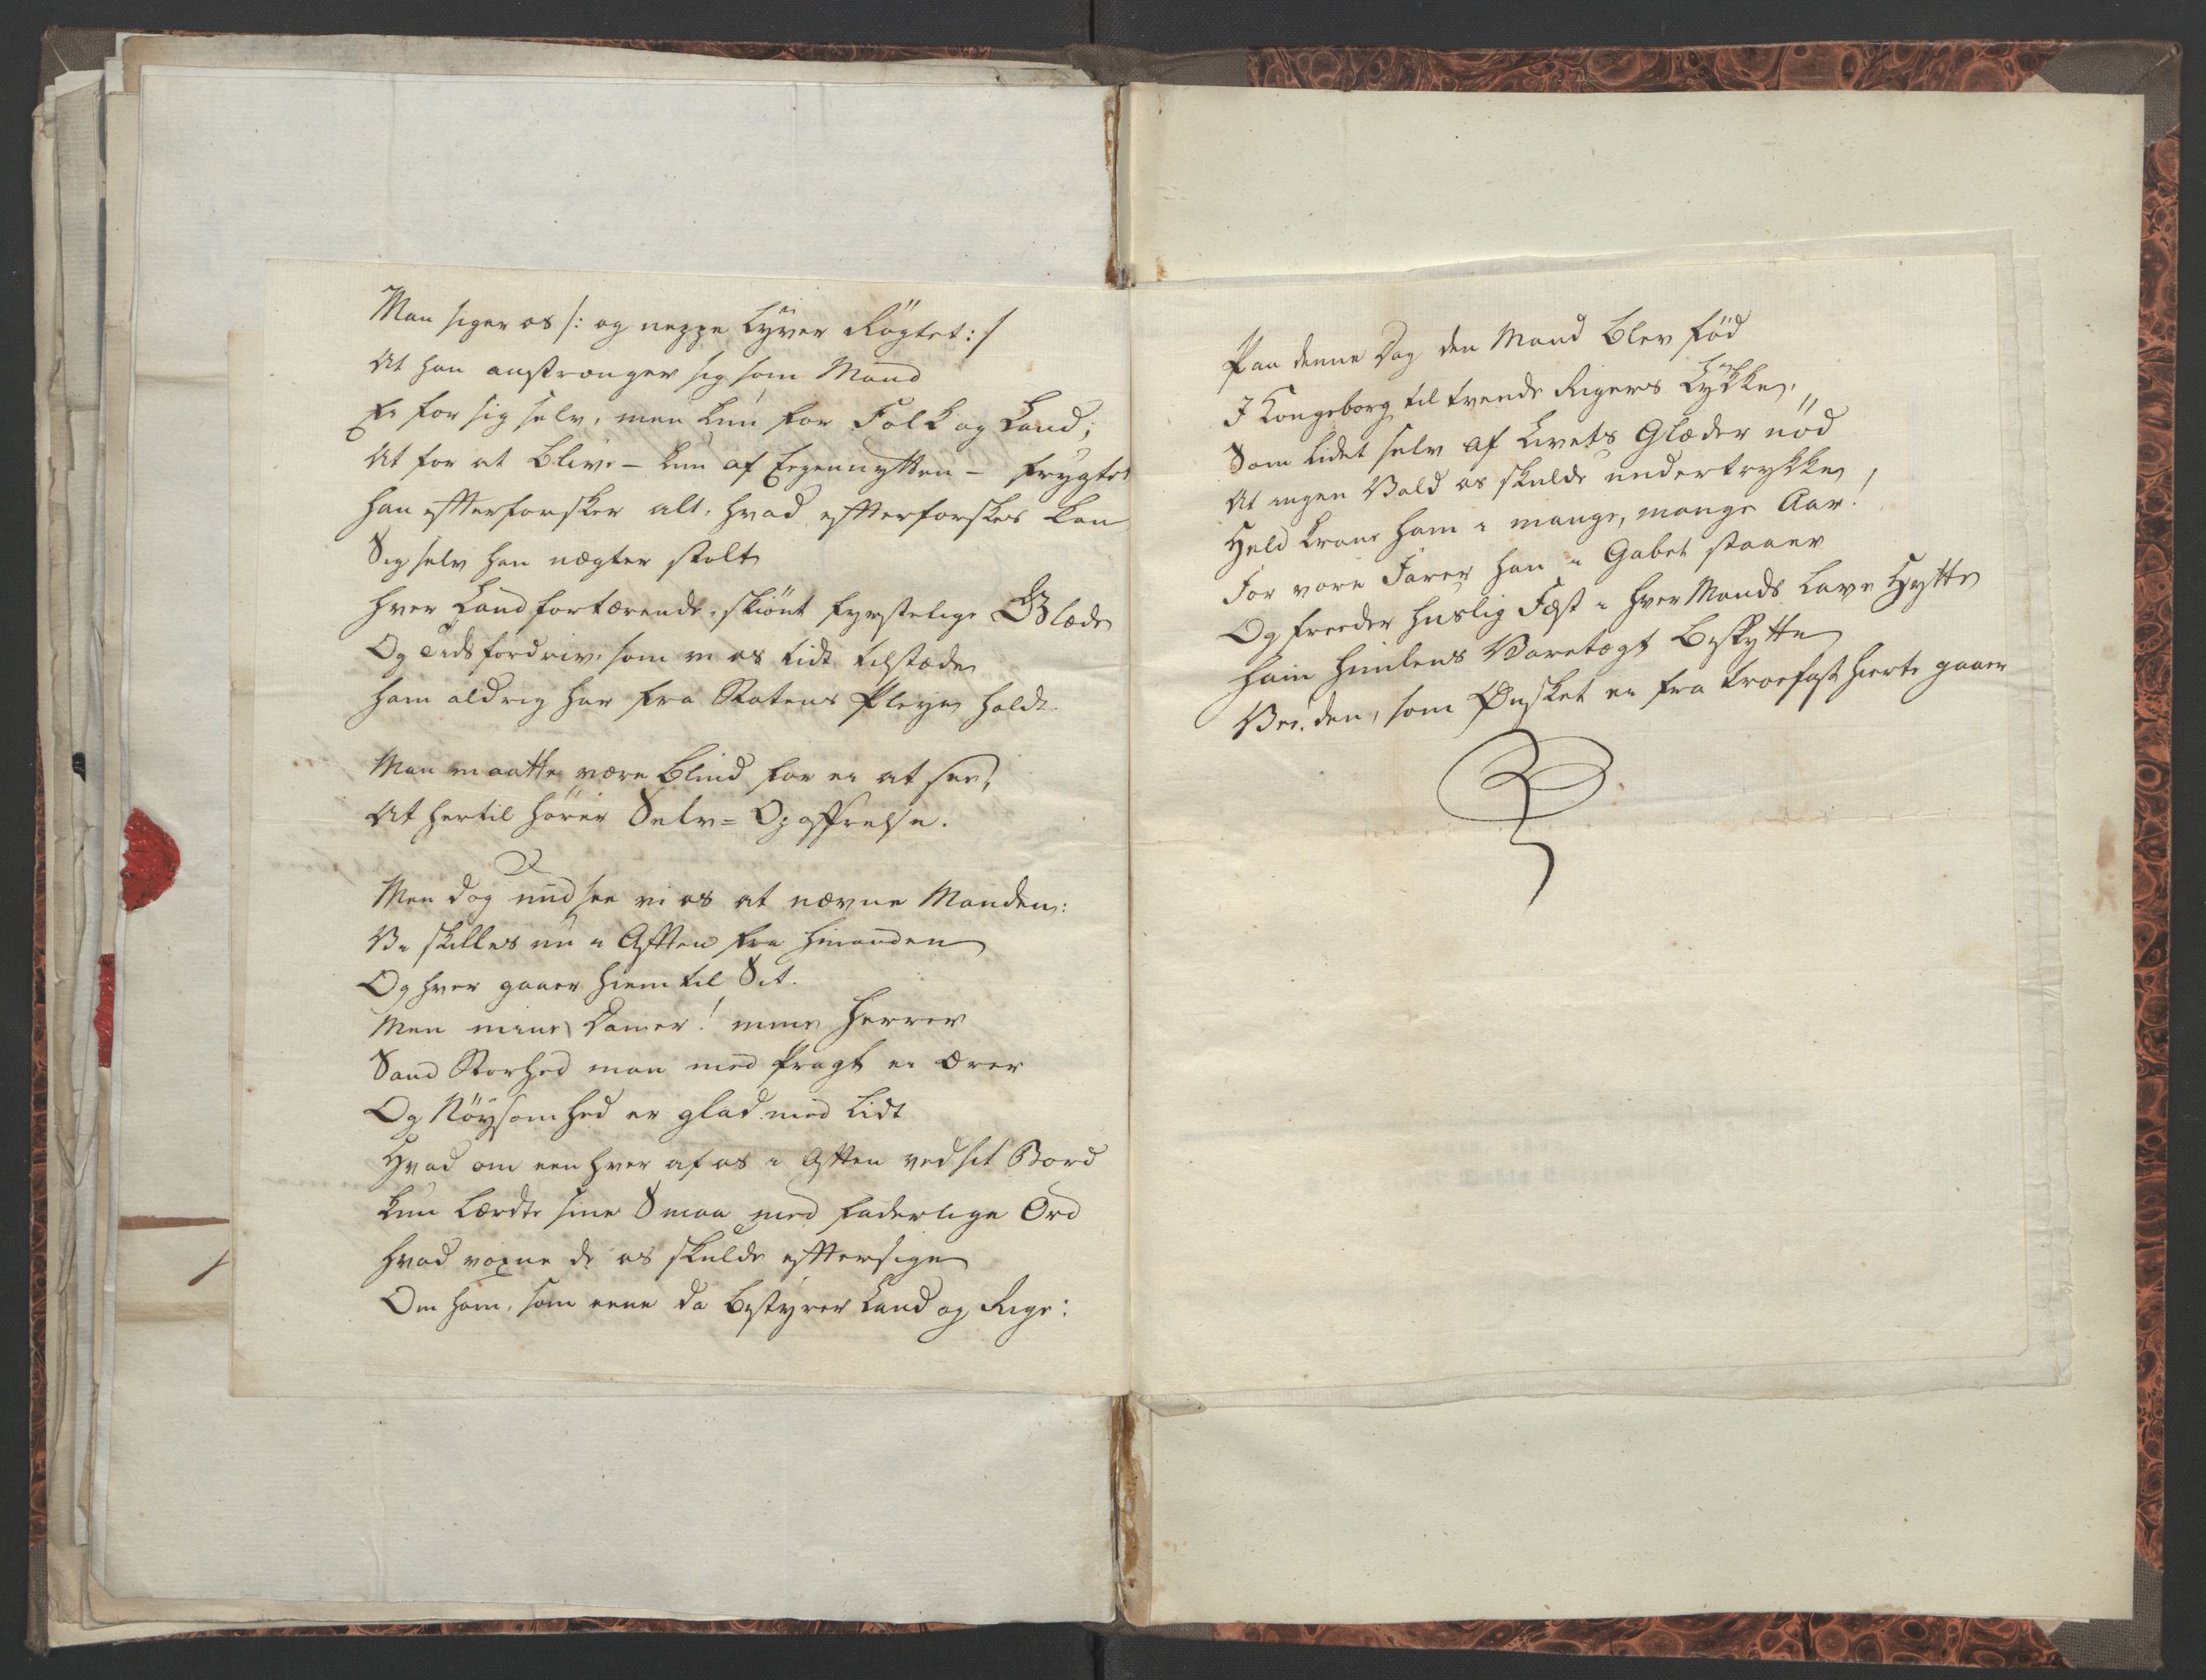 Man siger os /: og neppe lyver Rögtet :/
At han anstrænger sig som Mand
Ei for sig selv, men kun for Folk og Land;
At for at blive – kun af Egennytten – frygtet
Han efterforsker alt, hvad efterforskes kan
Sig selv han nægter stolt
Hver Landfortærende, skiönt fyrstelige Glæde
Og Tidsfordriv, som vi os tidt tilstæde
Ham aldrig har fra Statens Pleye holdt.
Man maatte være blind for ei at see,
At hertil hörer Selv=Opoffrelse.
Men dog undsee vi os at nævne Manden:
Vi skilles nu i Aften fra hinanden
Og hver gaaer hiem til Sit.
Men mine Damer! mine Herrer
Sand Storhed man med Pragt ei ærer
Og Nöysomhed er glad med lidt
Hvad om een hver af os i Aften ved sit Bord
Kun lærdte sine Smaa med faderlige Ord
Hvad voxne de os skulde eftersige
Om ham, som eene da bestyrer Land og Rige:
Paa denne Dag den Mand blev föd
I Kongeborg til tvende Rigers Lykke,
Som lidet selv af Livets Glæder nöd
At ingen Vold os skulde undertrykke,
Held krone ham i mange, mange Aar!
For vore Farer han i Gabet staaer
Og freeder huslig Fest i hver Mands lave Hytte
Ham Himlens Varetægt beskytte
Ved den, som Ønsket ei fra troefast Hierte gaaer